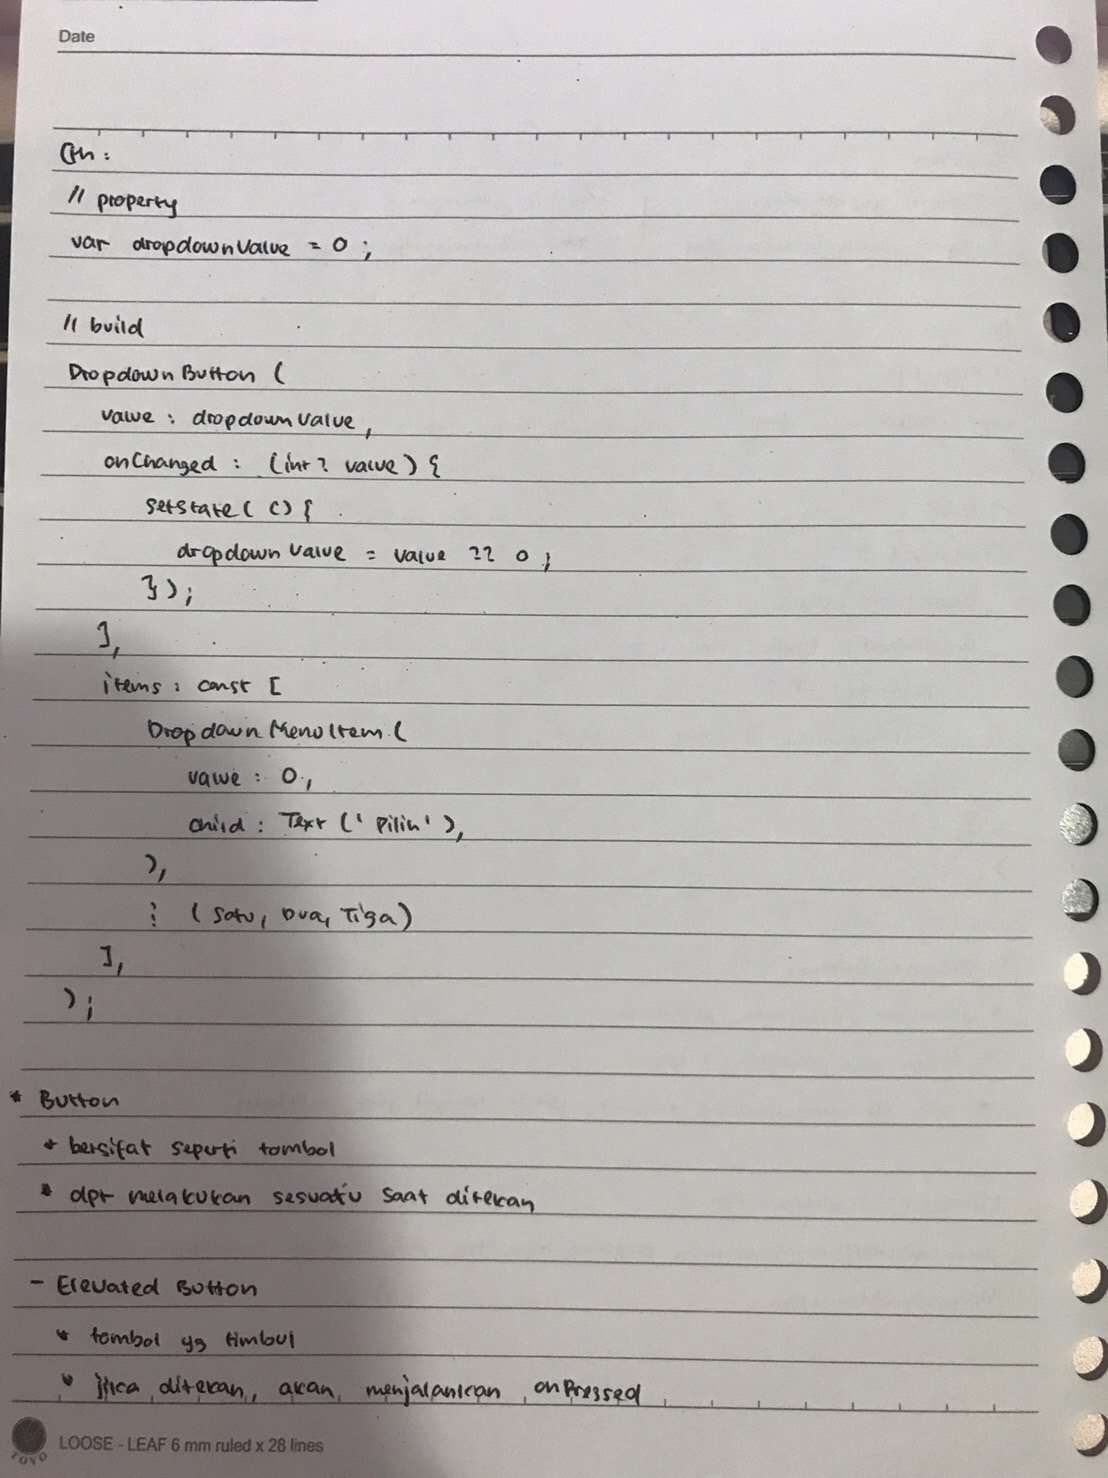 Date
Cth :
// property
var dropdownValue = 0 ;
// build
DropdownButton (
value : dropdownValue,
onChanged : (int? value) {
setState( () {
dropdownValue = value ?? 0 ;
});
],
items : const [
DropdownMenuItem (
value : 0,
child : Text ('Pilih'),
),
⋮ (Satu, Dua, Tiga)
],
);
* Button
* bersifat seperti tombol
* dpt melakukan sesuatu saat ditekan
- Elevated Button
* tombol yg timbul
* jika ditekan, akan menjalankan onPressed
TOYO
LOOSE - LEAF 6 mm ruled x 28 lines